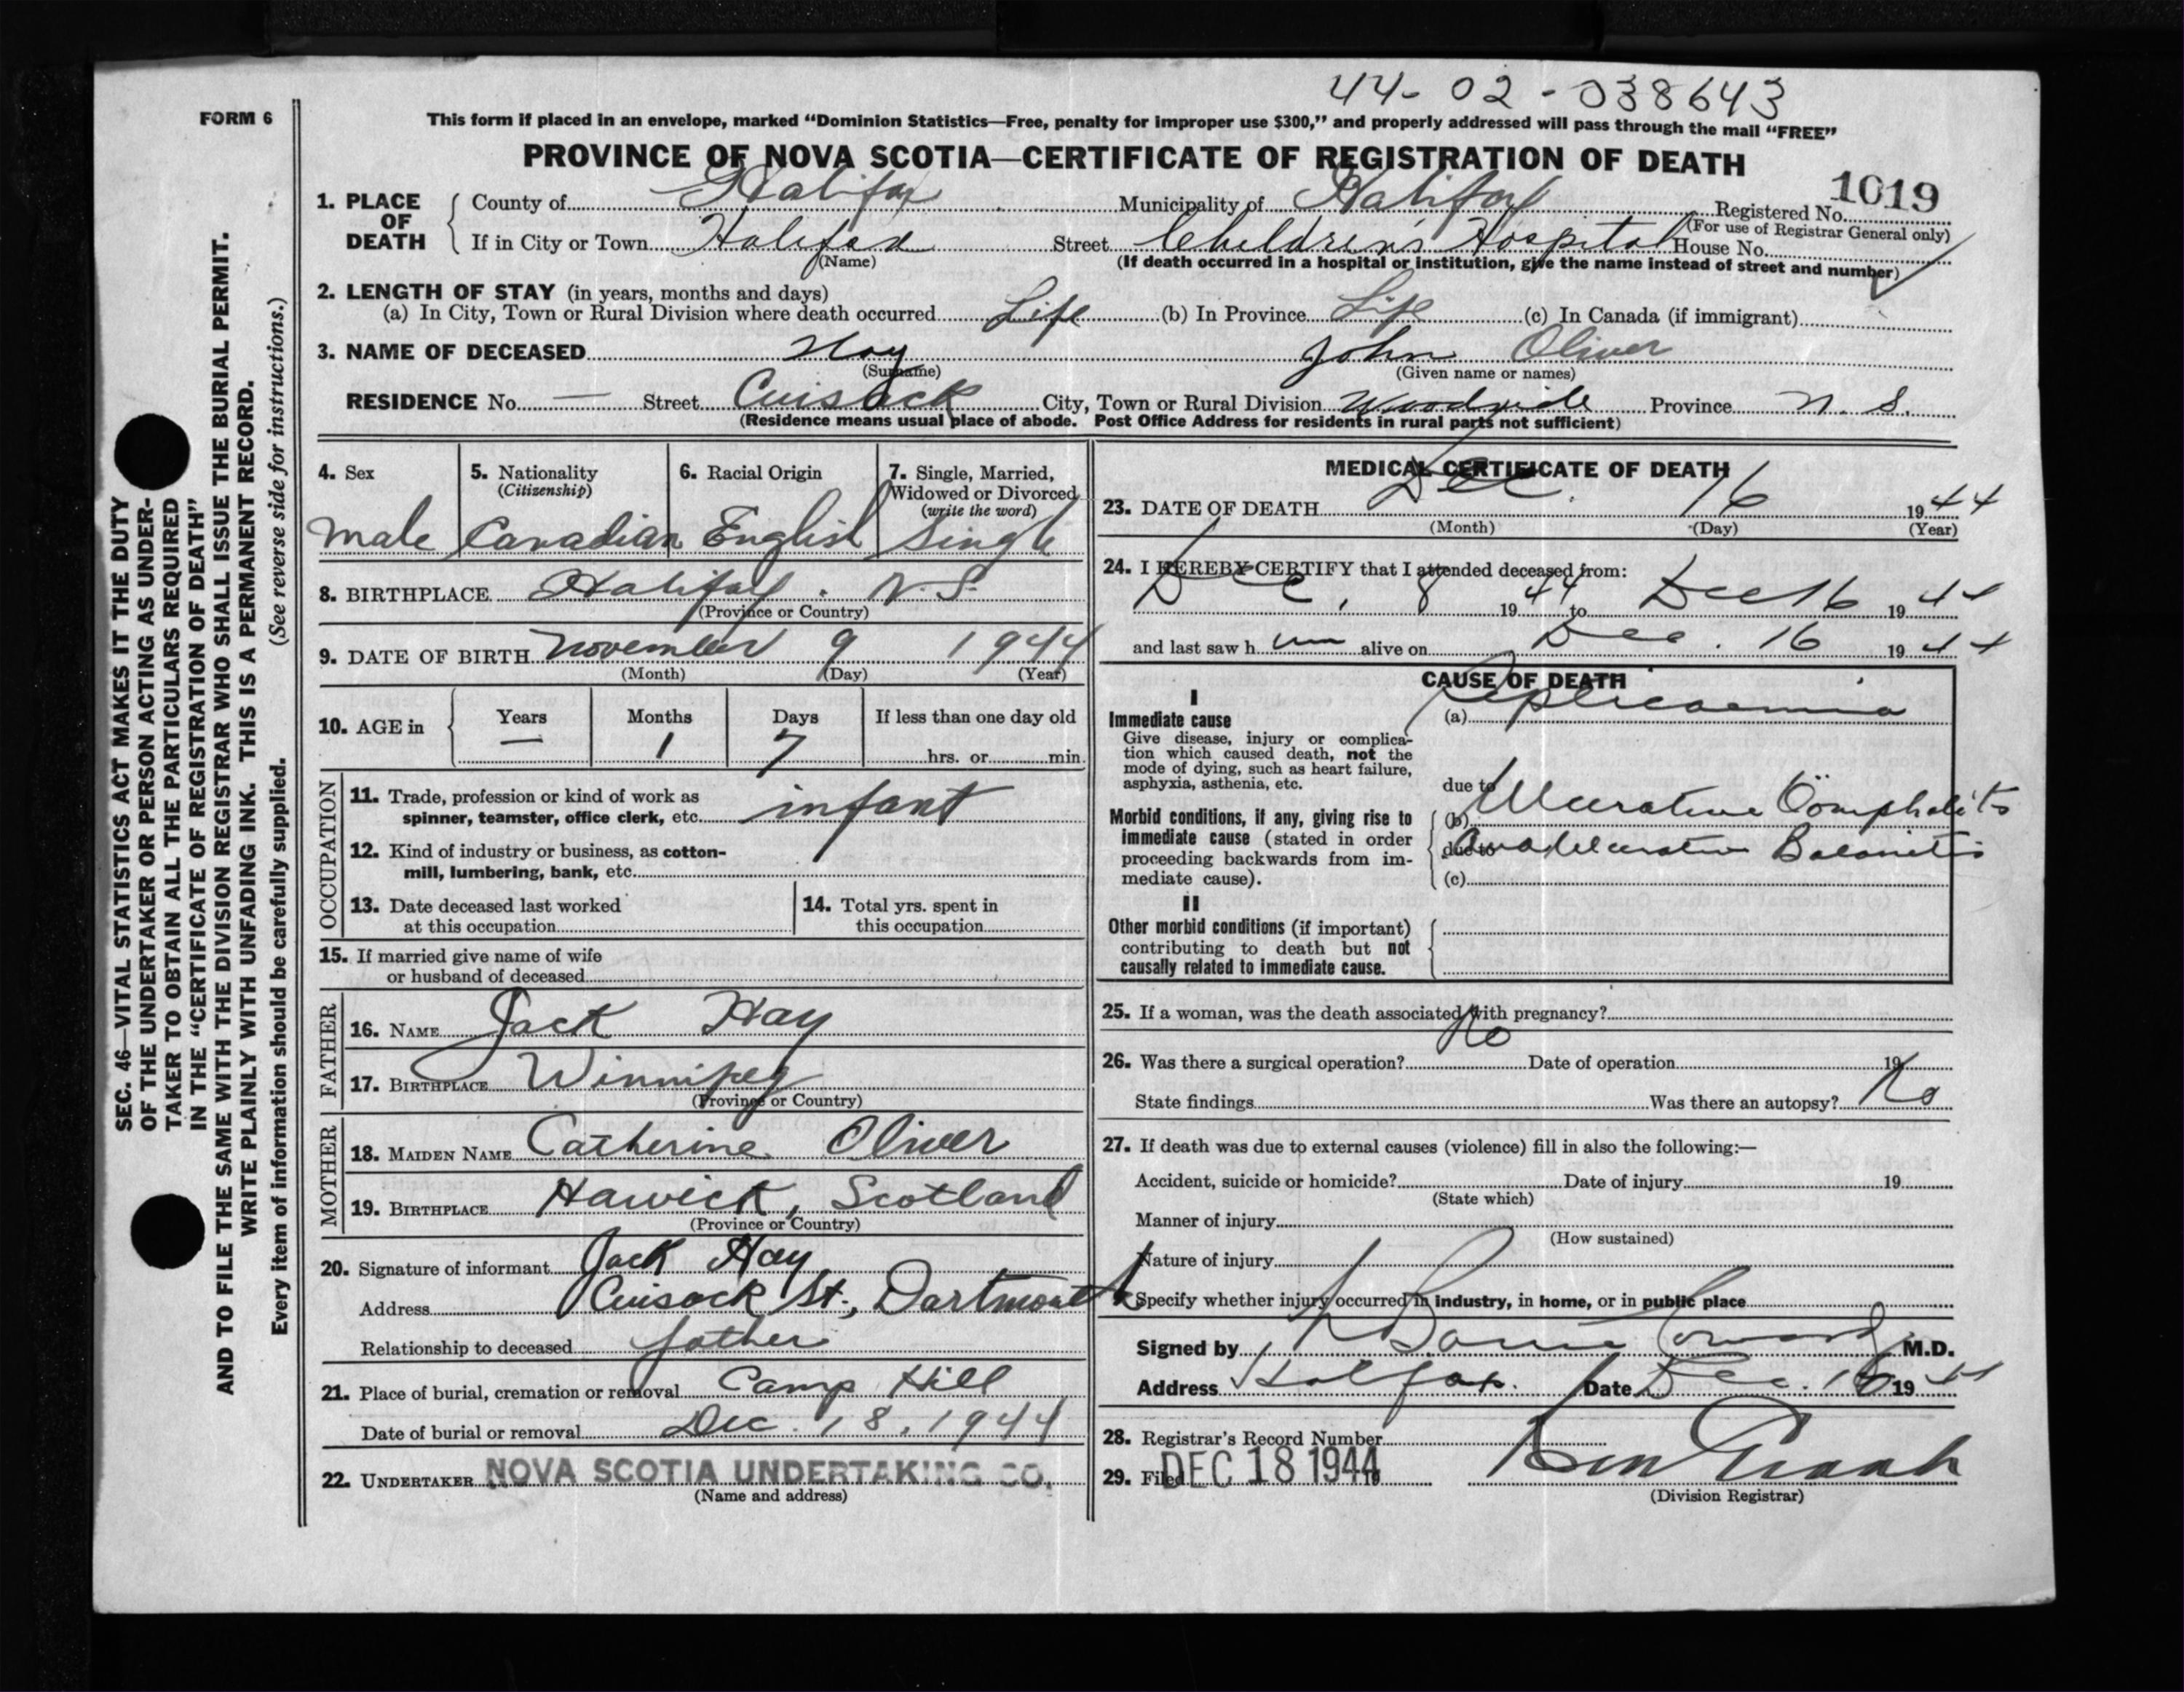 44-02-038643
FORM 6
This form if placed in an envelope, marked "Dominion Statistics—Free, penalty for improper use $300," and properly addressed will pass through the mail "FREE"
PROVINCE OF NOVA SCOTIA—CERTIFICATE OF REGISTRATION OF DEATH
1019
1. PLACE OF DEATH County of Halifax Municipality of Halifax Registered No.
(For use of Registrar General only)
If in City or Town Halifax Street Children's Hospital House No.
(Name) (If death occurred in a hospital or institution, give the name instead of street and number)
2. LENGTH OF STAY (in years, months and days)
(a) In City, Town or Rural Division where death occurred Life (b) In Province Life (c) In Canada (if immigrant)
3. NAME OF DECEASED Hay John Oliver
(Surname) (Given name or names)
RESIDENCE No. — Street Cuisack City, Town or Rural Division Woodside Province N. S.
(Residence means usual place of abode. Post Office Address for residents in rural parts not sufficient)
4. Sex 5. Nationality 6. Racial Origin 7. Single, Married,
(Citizenship) Widowed or Divorced
(write the word)
male Canadian English Single
8. BIRTHPLACE Halifax. N.S.
(Province or Country)
9. DATE OF BIRTH November 9 1944
(Month) (Day) (Year)
10. AGE in Years Months Days If less than one day old
— 1 7 hrs. or min.
OCCUPATION
11. Trade, profession or kind of work as
spinner, teamster, office clerk, etc. infant
12. Kind of industry or business, as cotton-
mill, lumbering, bank, etc.
13. Date deceased last worked 14. Total yrs. spent in
at this occupation this occupation
15. If married give name of wife
or husband of deceased
FATHER
16. NAME Jack Hay
17. BIRTHPLACE Winnipeg
(Province or Country)
MOTHER
18. MAIDEN NAME Catherine Oliver
19. BIRTHPLACE Hawick, Scotland
(Province or Country)
20. Signature of informant Jack Hay
Address Cuisack St., Dartmouth
Relationship to deceased father
21. Place of burial, cremation or removal Camp Hill
Date of burial or removal Dec. 18, 1944
22. UNDERTAKER NOVA SCOTIA UNDERTAKING CO.
(Name and address)
MEDICAL CERTIFICATE OF DEATH
23. DATE OF DEATH Dec. 16 1944
(Month) (Day) (Year)
24. I HEREBY CERTIFY that I attended deceased from:
Dec, 8 1944 to Dec 16 1944
and last saw h im alive on Dec. 16 1944
CAUSE OF DEATH
I
Immediate cause (a) Septicaemia
Give disease, injury or complica-
tion which caused death, not the
mode of dying, such as heart failure,
asphyxia, asthenia, etc. due to
Morbid conditions, if any, giving rise to (b) Ulcerative Omphalitis
immediate cause (stated in order due to and Ulcerative Balanitis
proceeding backwards from im-
mediate cause). (c)
II
Other morbid conditions (if important)
contributing to death but not
causally related to immediate cause.
25. If a woman, was the death associated with pregnancy?
26. Was there a surgical operation? No Date of operation 19
State findings Was there an autopsy? No
27. If death was due to external causes (violence) fill in also the following:—
Accident, suicide or homicide? Date of injury 19
(State which)
Manner of injury
(How sustained)
Nature of injury
Specify whether injury occurred in industry, in home, or in public place
Signed by M.D.
Address Halifax. Date Dec. 16 1944
28. Registrar's Record Number
29. Filed DEC 18 1944 19
(Division Registrar)
SEC. 46—VITAL STATISTICS ACT MAKES IT THE DUTY
OF THE UNDERTAKER OR PERSON ACTING AS UNDER-
TAKER TO OBTAIN ALL THE PARTICULARS REQUIRED
IN THE "CERTIFICATE OF REGISTRATION OF DEATH"
AND TO FILE THE SAME WITH THE DIVISION REGISTRAR WHO SHALL ISSUE THE BURIAL PERMIT.
WRITE PLAINLY WITH UNFADING INK. THIS IS A PERMANENT RECORD.
Every item of information should be carefully supplied. (See reverse side for instructions.)